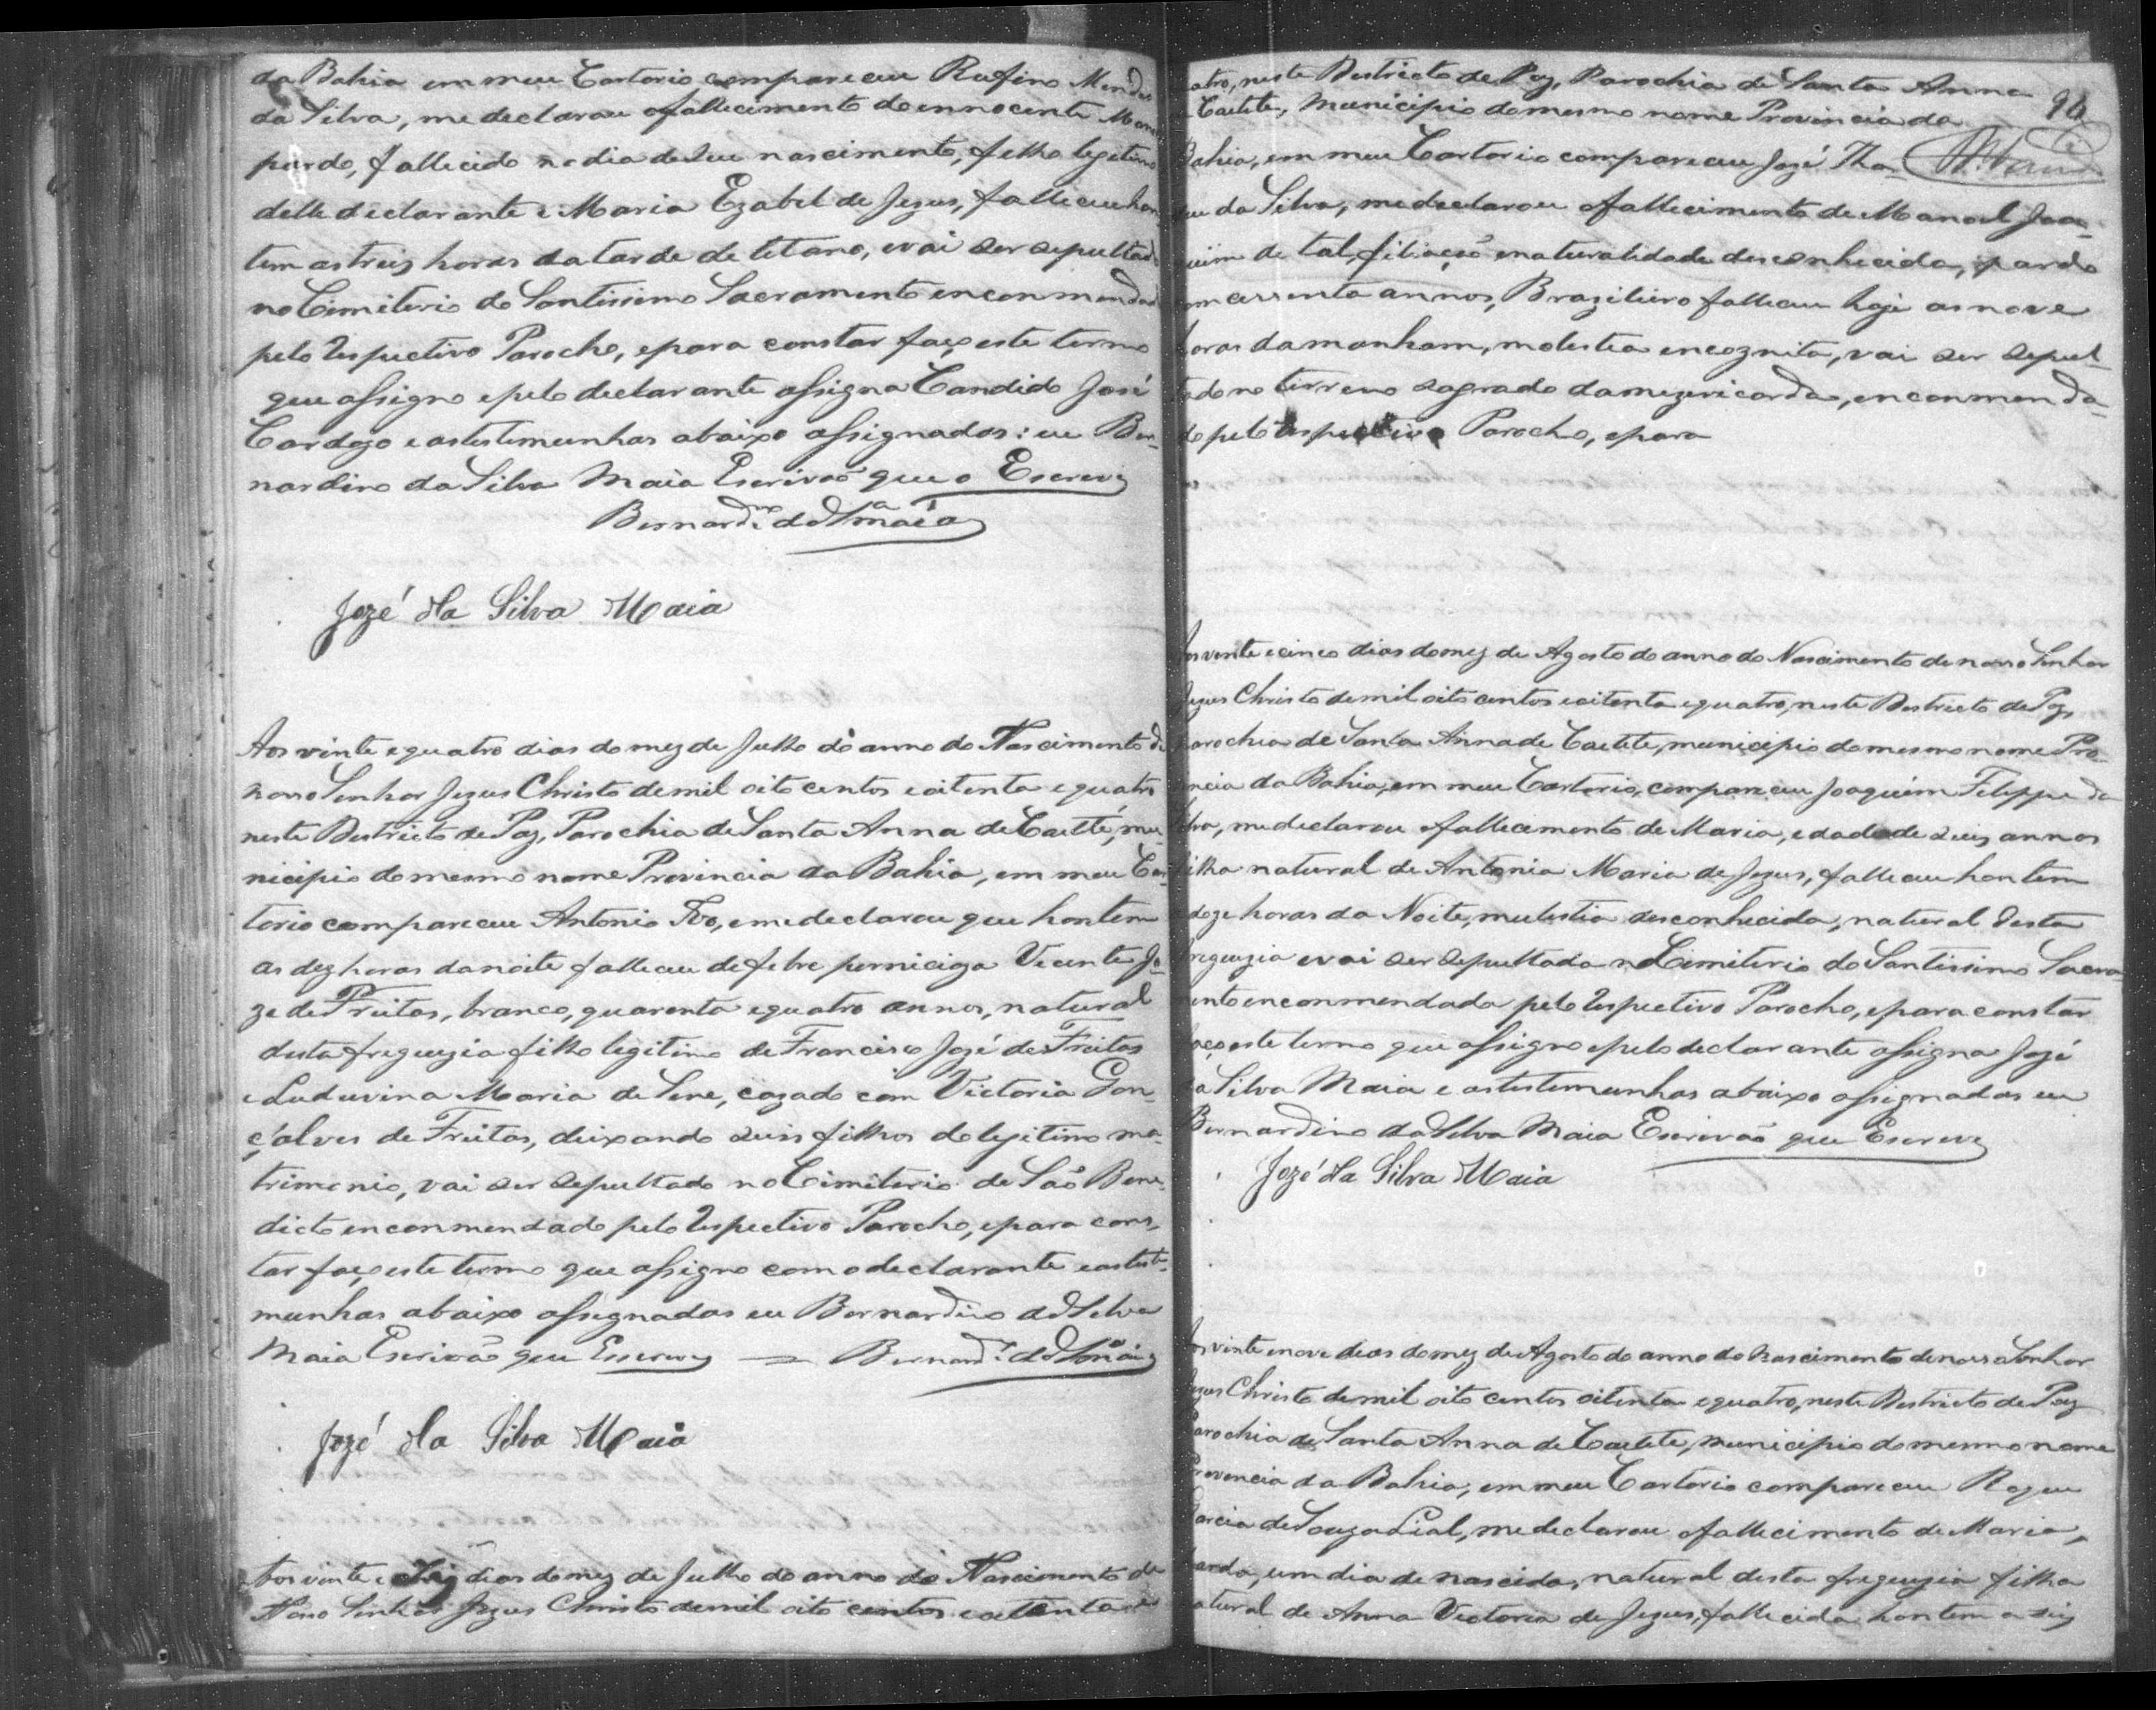 da Bahia em meu Cartorio compareceu Rufino Mendes
da Silva, me declarou o fallecimento do ennocente
pardo, fallecido no dia de seu nascimento, filho legitimo
delle declarante e Maria Ezabel de Jezus, falleceu hon
tem as treis horas da tarde de tetano, e vai ser sepultado
no Cimiterio do Santissimo Sacramento enconmendado
pelo respectivo Parocho, e para constar faço este termo
que assigno e pelo declarante assigna Candido José
Cardozo e as testemunhas abaixo assignados: eu Ber-
nardino da Silva Maia Escrivaõ que o Escrevy
Bernardno da Sa Maia
Jozé da Silva Maia
Aos vinte e quatro dias do mez de Julho do anno do Nascimento de
nosso Senhor Jezus Christo de mil oito centos e oitenta e quatro
neste Destricto de Paz, Parochia de Santa Anna de Caetté, mu-
nicipio do mesmo nome Provincia da Bahia, em meu Car
torio compareceu Antonio Ivo, e me declarou que hontem
as dez horas da noite falleceu de febre perniciza Vicente Jo-
ze de Freitas, branco, quarenta e quatro annos, natural
desta freguezia filho legitimo de Francisco José de Freitas
e Luduvina Maria de Sene, cazado com Victoria Gon-
çalves de Freitas, deixando seis filhos do legitimo ma-
trimonio, vai ser sepultado no Cimiterio de Saõ Bene-
dicto enconmendado pelo respectivo Parocho, e para cons-
tar faço este termo que assigno com o declarante e as teste-
munhas abaixo assegnados eu Bernardino da Selva
Maia Escrivaõ que Escrevy = Bernardno da Sa Maia
Jozé da Silva Maia
Aos vinte e dias do mez de Julho do anno do Nascimento de
Nosso Senhor Jezus Christo de mil oito centos e oitenta e
atro, neste Destricto de Paz, Parochia de Santa Anna
Caetete, Municipio do mesmo nome Provincia da
Bahia, em meu Cartorio compareceu José Tha-
deu da Silva, me declarou o fallecimento de Manoel Joa-
quim de tal, filiação e naturalidade desconhecida, pardo
com cessenta annos, Brazileiro falleceu hoje as nove
horas da manham, molestea encoznita, vai ser sepul-
tado no terreno sagrado da mezericordia, enconmenda-
do pelo respectivo Parocho, e para
Aos vente e cinco dias do mez de Agosto do anno do Nascimento de nosso Senhor
Jezus Christo de mil oito centos e oitenta e quatro, neste Destricto de Paz,
Parochia de Santa Anna de Caetete, municipio do mesmo nome Pro-
vincia da Bahia, em meu Cartorio, compareceu Joaquim Felippe da
Silva, me declarou o fallecimento de Maria, edade de seis annos
filha natural de Antonia Maria de Jezus, falleceu hontem
as doze horas da Noite, mulestia desconhecida, natural desta
freguezia e vai ser sepultada no Cimiterio do Santissimo Sacra-
mento enconmendada pelo respectivo Parocho, e para constar
faço este termo que assigno e pelo declarante assigna José
da Silva Maia e as testemunhas abaixo assignados eu
Bernardino da Selva Maia Escrivaõ que Escrevy
Jozé da Silva Maia
Aos vinte e nove deas do mez de Agosto do anno do nascimento de nosso Senhor
Jezus Christo de mil oito centos oitenta e quatro, neste Destricto de Paz
Parochia de Santa Anna de Caetete, municipio do mesmo nome
Provencia da Bahia, em meu Cartorio compareceu
Garcia de Souza Lial, me declarou o fallecimento de Maria,
parda, um dia de nascida, natural desta freguezia filha
natural de Anna Victoria de Jezus, fallecida hontem a seis